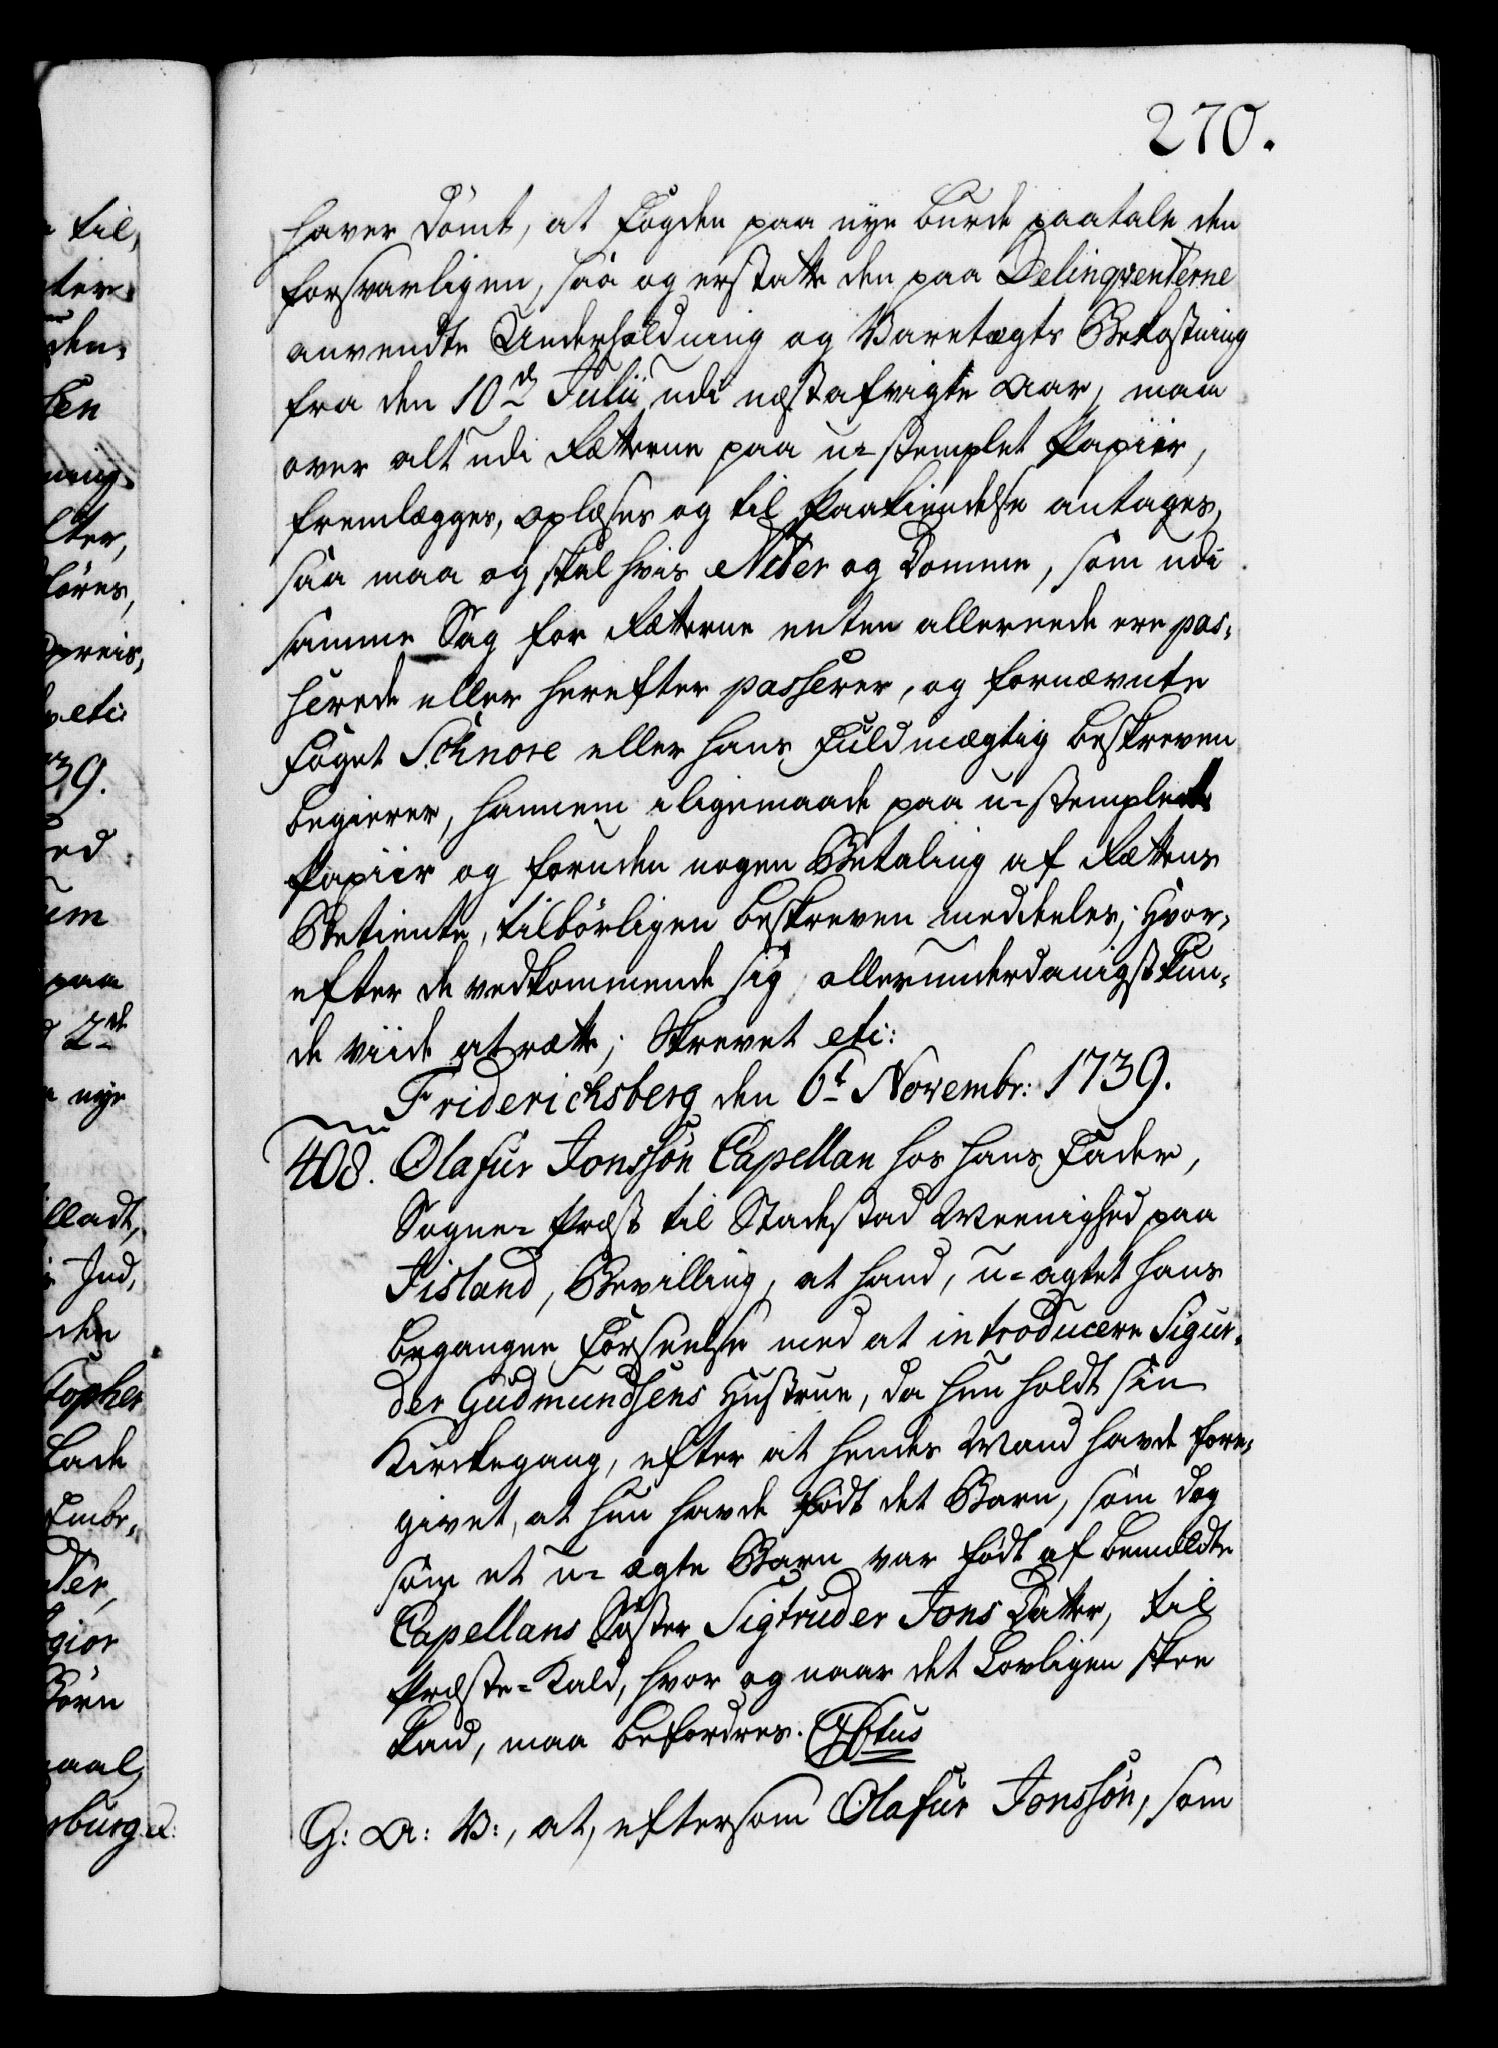 270.
haver dömt, at Fogden paa nye burde paatale den
forsvarligen, saa og erstatte den paa Delinqventerne
anvendte Underholdning og Varetægts Bekostning
fra den 10de Julii udi næstafvigte Aar, maa
over alt udi Rætterne paa u-stemplet Papiir,
fremlægges, oplæses og til Paakiendelse antages,
saa maa og skal hvis Acter og Domme, som udi
samme Sag for Rætterne enten allereede ere pas-
serede eller herefter passerer, og fornævnte
Foget Schnore eller hans Fuldmægtig beskreven
begierer, hannem i ligemaade paa u-stemplet
Papiir og foruden nogen Betaling af Rættens
Betiente, tilbörligen beskreven meddeeles; Hvor-
efter de vedkommende sig allerunderdanigst kun-
de viide at rætte; Skrevet etc:
Friderichsberg den 6t Novembr: 1739.
408. Olafur Jonssön Capellan hos hans Fader,
Sogne-Præst til Stadestad Meenighed paa
Jisland, Bevilling, at hand, u-agtet hans
begangne Forseelse med at introducere Sigur-
der Gudmundsens Hustrue, da hun holdt sin
Kirckegang, efter at hendes Mand havde fore-
givet, at hun havde födt det Barn, som dog
som et u-ægte Barn var födt af bemeldte
Capellans Söster Sigtruder Jons Datter, til
Præste-Kald, hvor og naar det Lovligen skee
kand, maa befordres.
G: A: V:, at, eftersom Olafur Jonssön, som